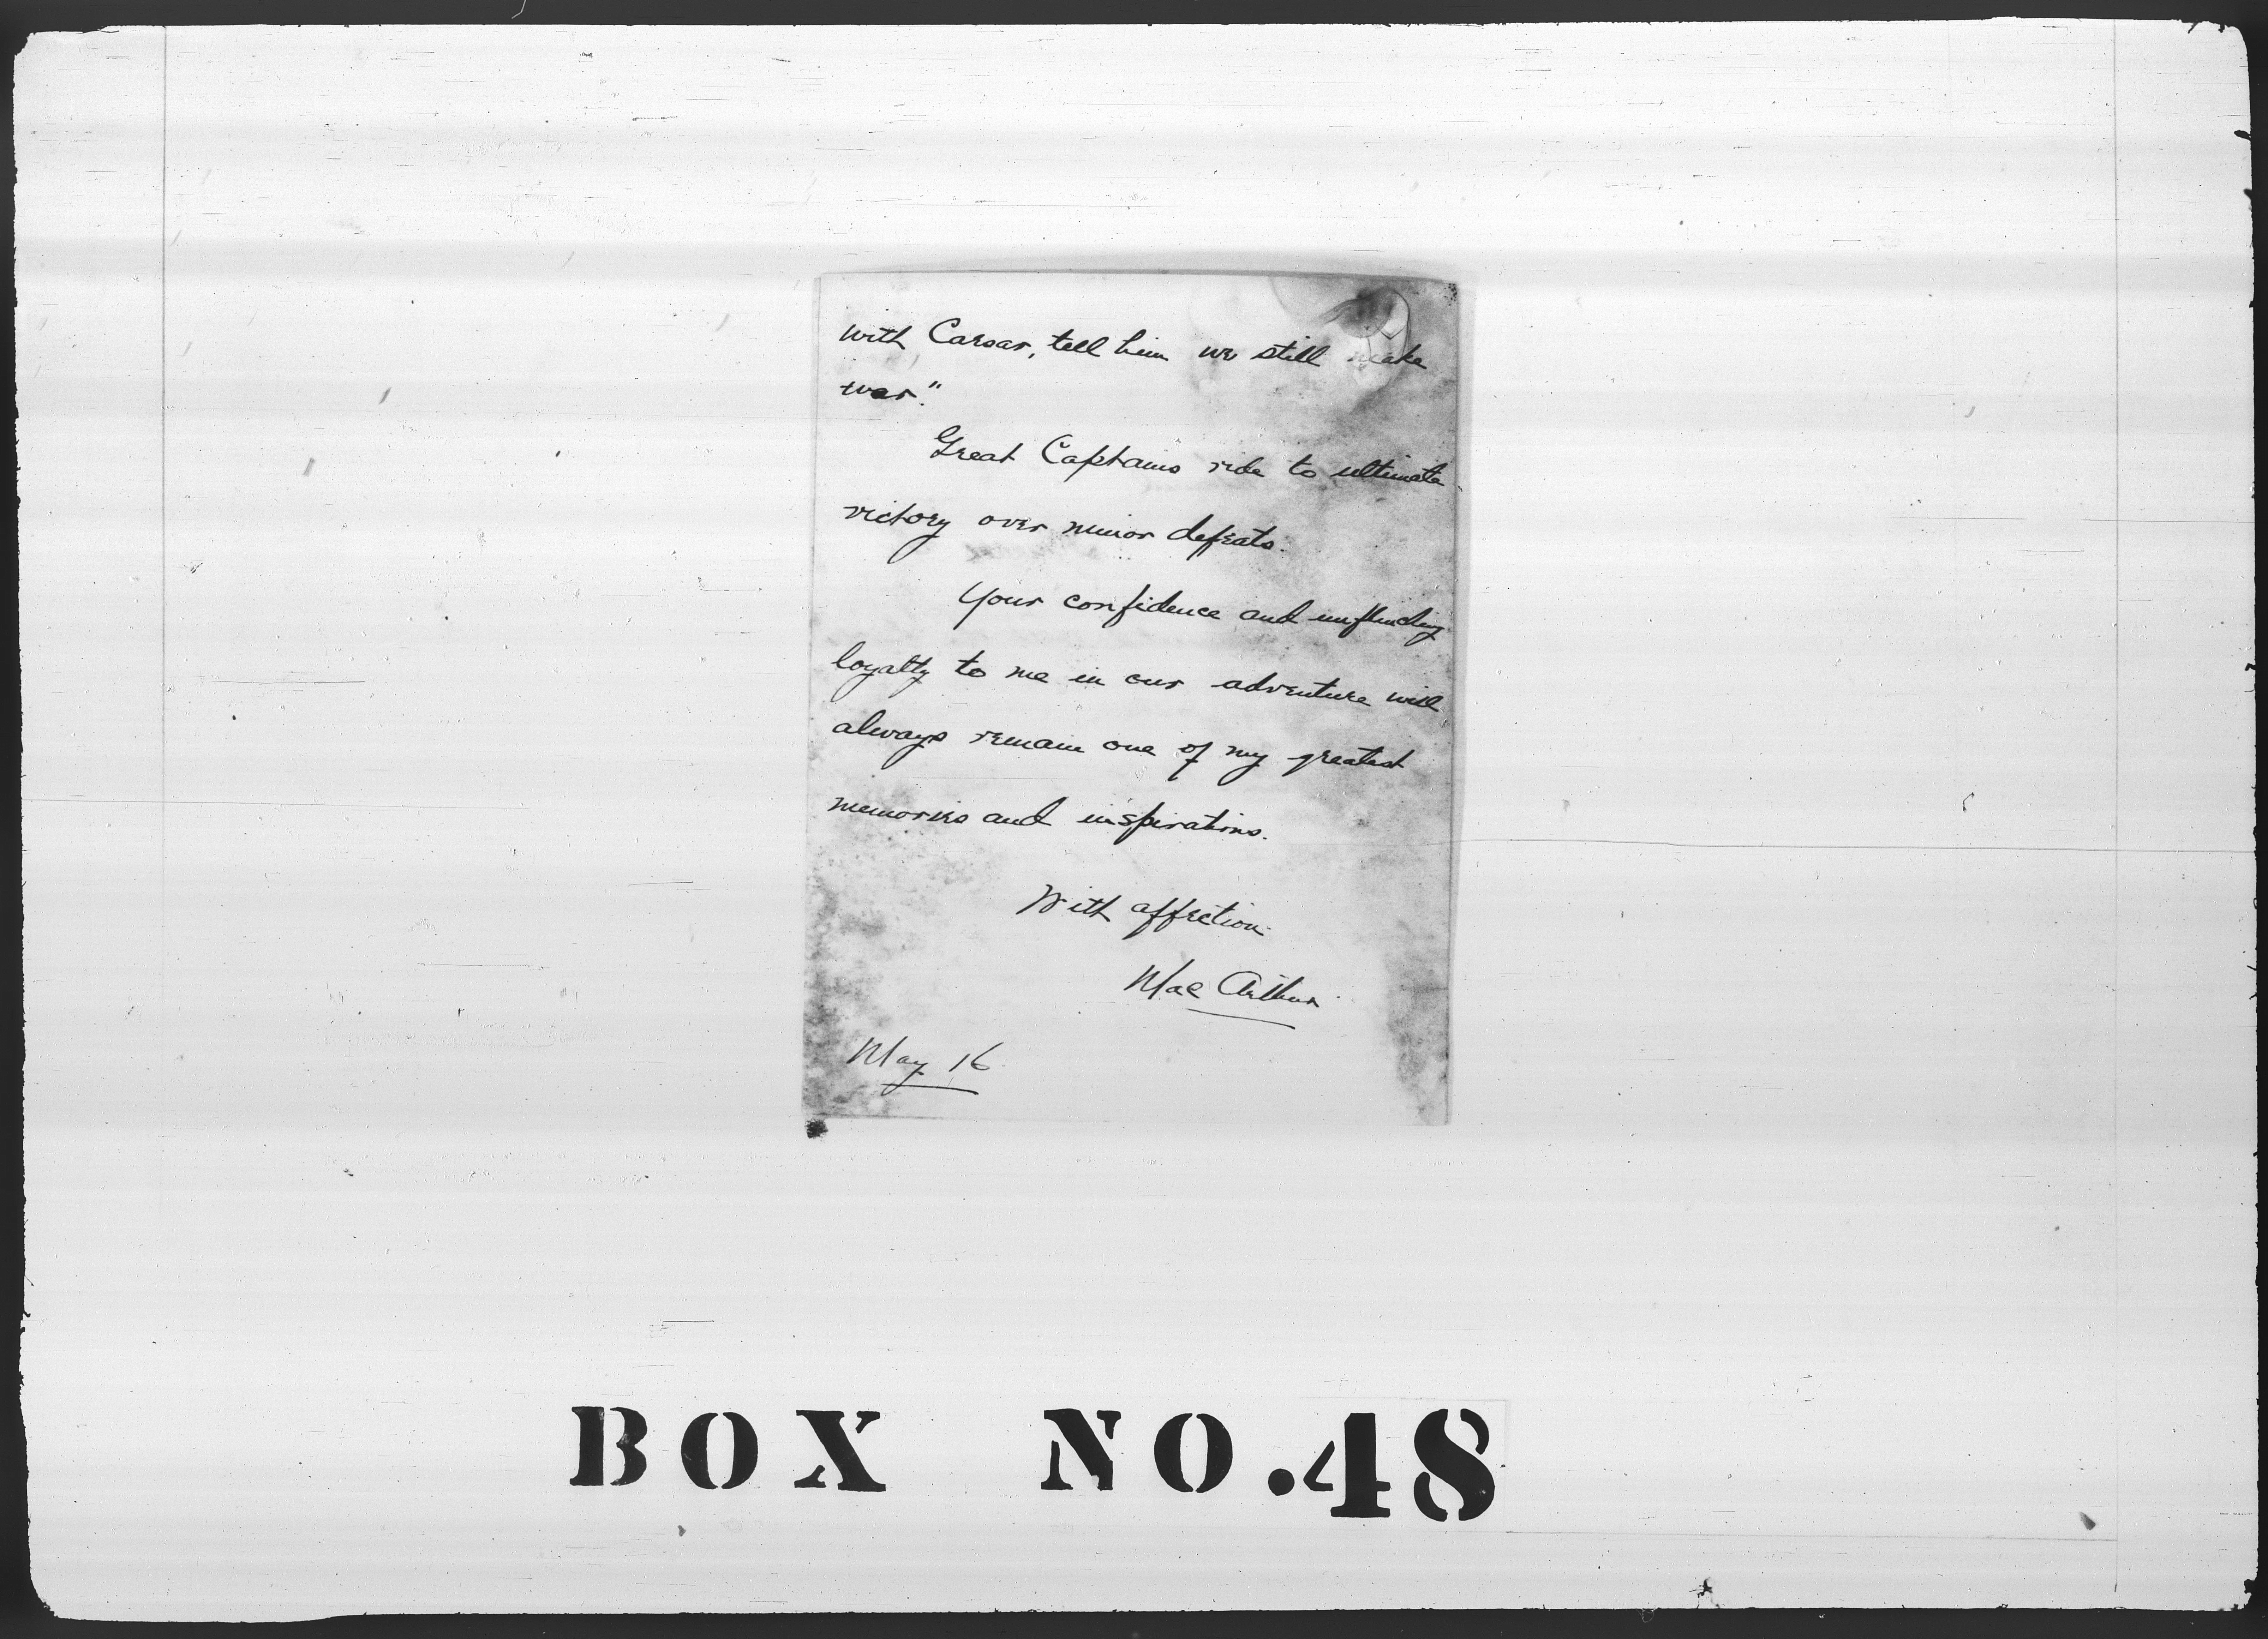 with Caesar, tell him we still make
war."
Great Captains ride to ultimate
victory over minor defeats.
Your confidence and unflinching
loyalty to me in our adventure will
always remain one of my greatest
memories and inspirations.
With affection
MacArthur
May 16
BOX NO.48